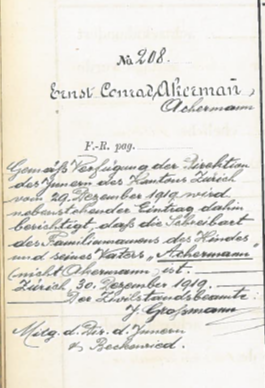 No 208.
Ernst Conrad, Akermañ
Achermann
F.-R. pag.
Gemäß Verfügung der Direktion
des Innern des Kantons Zürich
vom 29. Dezember 1919 wird
nebenstehender Eintrag dahin
berichtigt, daß die Schreibart
des Familiennamens des Kindes
und seines Vaters „Achermann"
(nicht Akermann) ist.
Zürich, 30. Dezember 1919.
Der Zivilstandsbeamte:
J. Großmann
Mitg. d. Dir. d. Innern
& Beckenried.